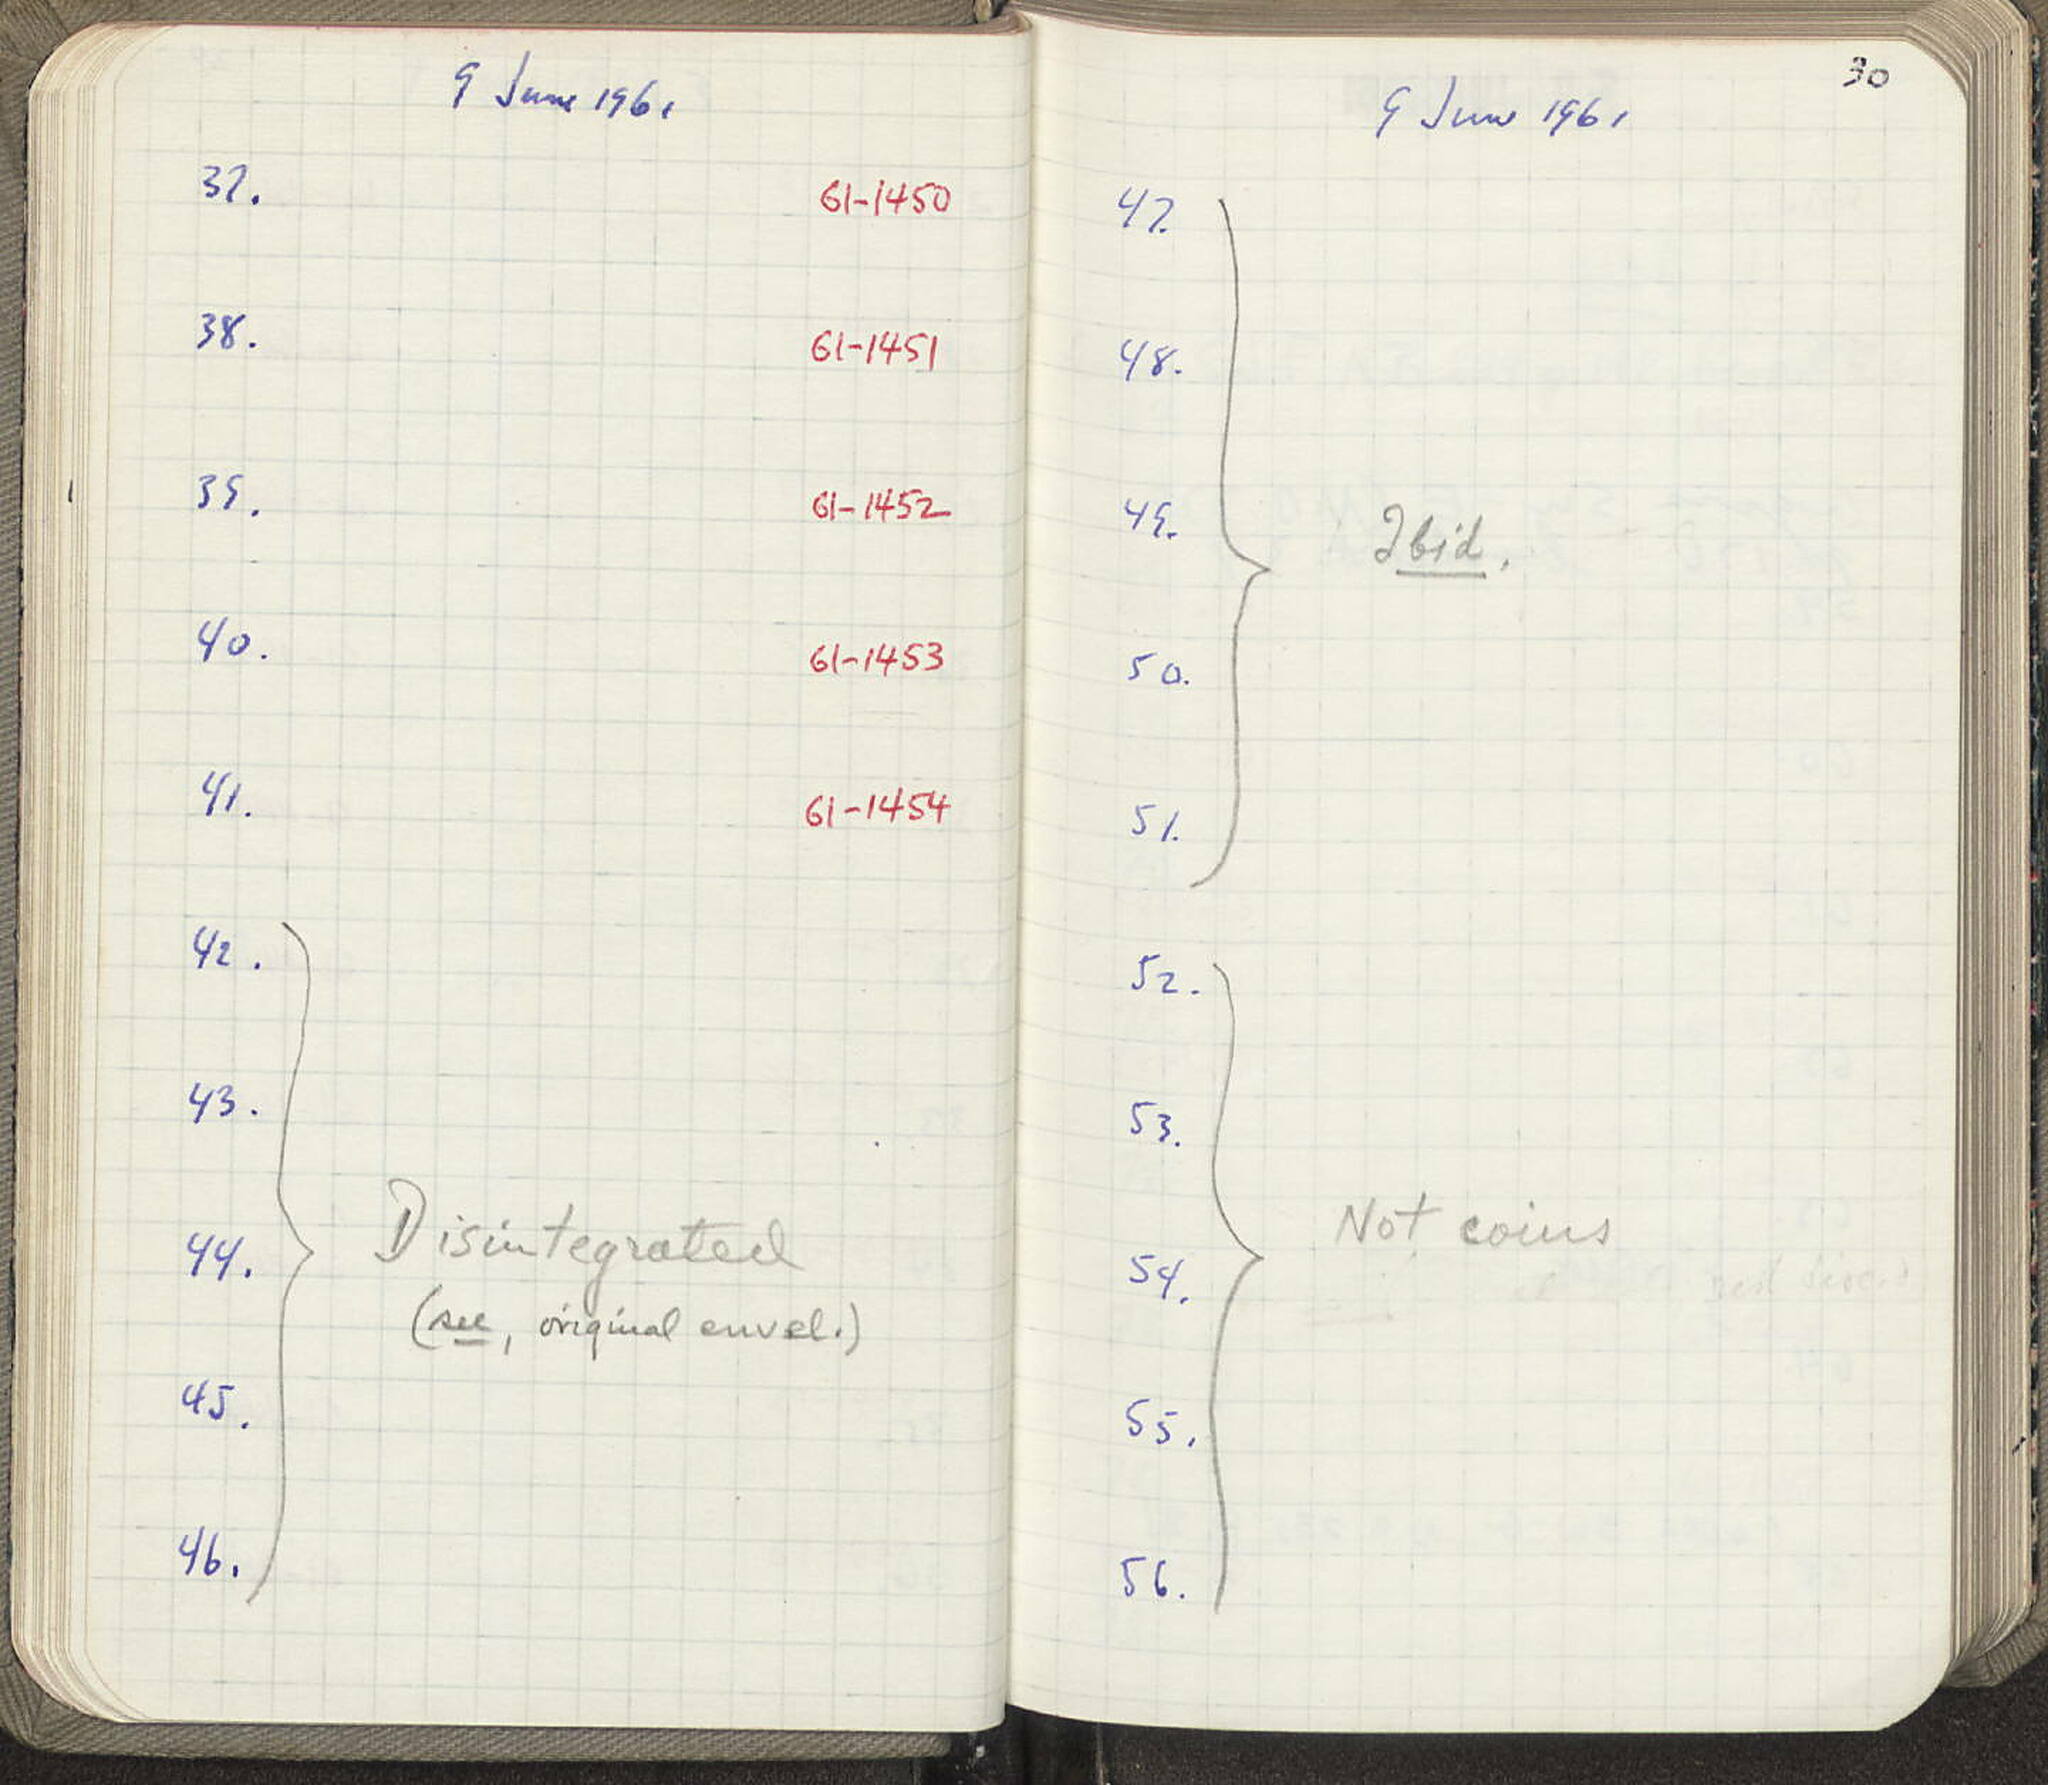 9 June 1961
37. 61-1450
38. 61-1451
39. 61-1452
40. 61-1453
41. 61-1454
42.
43.
44. Disintegrated
(see, original envel.)
45.
46.
30
9 June 1961
47.
48.
49. Ibid.
50.
51.
52.
53.
54. Not coins
55.
56.